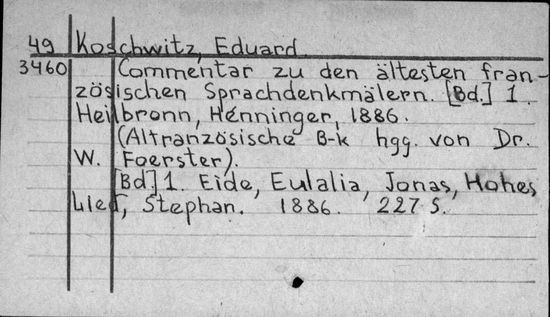 49 Koschwitz, Eduard
3460 Commentar zu den ältesten fran-
zösischen Sprachdenkmälern. [Bd.] 1.
Heilbronn, Henninger, 1886.
(Altranzösische B-k hgg. von Dr.
W. Foerster).
[Bd.] 1. Eide, Eulalia, Jonas, Hohes
Lied, Stephan. 1886. 227 S.